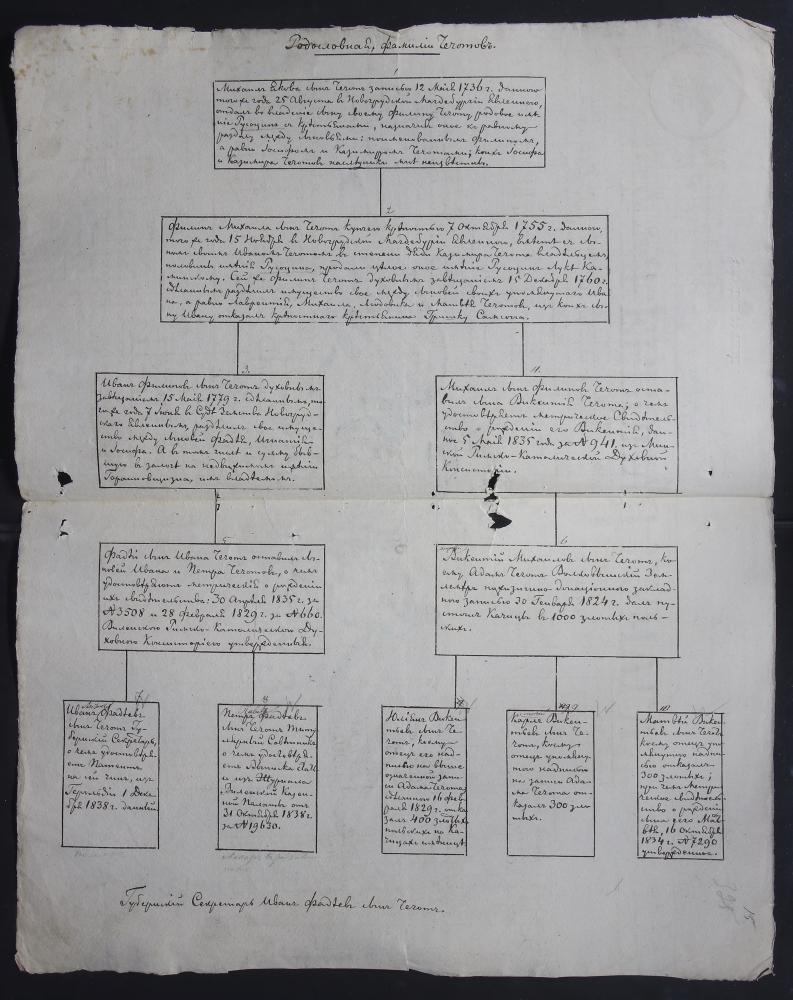 Родословная, фамилии Чечотовъ.
1
Михаилъ Якова сынъ Чечотъ записью 12 Маія 1736 г. данною
того же года 25 Августа въ Новогрудской Магдебургіи явленною,
отдалъ во владеніе сыну своему Филипу Чечоту родовое имѣ
ніе Русоцино съ крѣстьянами, назначивъ оное къ равному
раздѣлу между сыновьями: поименованнымъ Филипомъ,
а равно Іосифомъ и Казимиромъ Чечотами; коихъ Іосифа
и Казимира Чечотовъ наслѣдники мнѣ неизвѣстны.
2
Филипъ Михаила сынъ Чечотъ купчею крѣпостью 7 Октября 1755 г. данною,
того же года 15 Ноября въ Новогрудской Магдебургіи явленною, вмѣстѣ съ сы-
номъ своимъ Иваномъ Чечотомъ въ степени дяди Казимира Чечота владѣющемъ
половиною имѣнія Русоцина, продали цѣлое оное имѣніе Русоцино Лукѣ Ка-
минскому. Сей же Филипъ Чечотъ духовнымъ завѣщаніемъ 15 Декабря 1760 г.
сдѣланнымъ раздѣлилъ имущество свое между сыновей своихъ упомянутаго Ива
на, а равно Лаврентія, Михаила, Людовика и Матвѣя Чечотовъ, изъ коихъ сы-
ну Ивану отказалъ крѣпостнаго крѣстьянина Гришку
3.
Иванъ Филиповъ сынъ Чечотъ духовнымъ
завѣщаніемъ 15 Маія 1779 г. сдѣланнымъ, то
го же года 7 Іюня въ Судѣ Земства Новогруд-
скаго явленнымъ, раздѣлилъ свое имуще-
ство между сыновей Фадѣя, Игнатія
и Іосифа. А въ томъ числѣ и сумму быв-
шую въ залогѣ на недвижимомъ имѣніи
имъ владѣемомъ.
4.
Михаилъ сынъ Филиповъ Чечотъ оста-
вилъ сына Викентія Чечота; о чемъ
удостовѣряетъ метрическое Свидѣтель-
ство о рожденіи его Викентія, дан-
ное 5 Маія 1835 года за № 941. изъ Мин-
ской Римско-Католической Духовной
Консисторіи.
5
Фадѣй сынъ Ивана Чечотъ оставилъ сы-
новей Ивана и Петра Чечотовъ, о чемъ
удостовѣряютъ метрическія о рожденіи
ихъ свидѣтельства: 30 Апрѣля 1835 г. за
№ 3508 и 28 Февраля 1829 г. за № 660.
Виленскою Римско-Католическою Ду-
ховною Консисторіею утвержденныя.
6
Викентій Михаиловъ сынъ Чечотъ, ко-
ему Адамъ Чечотъ Волковыскій Зем-
лемѣръ заклад-
ною записью 30 Генваря 1824 г. далъ пу-
стошъ Качицы въ 1000 злотыхъ поль-
скихъ.
7
Иванъ Фадѣевъ
сынъ Чечотъ Гу-
бернскій Секретарь,
о чемъ удостовѣря-
етъ Патентъ
на сей чинъ, изъ
Герольдіи 1 Дека-
бря 1838 г. данный
8
Петръ Фадѣевъ
сынъ Чечотъ Титу
лярный Совѣтникъ
о чемъ удостовѣря-
етъ
изъ Журнала
Виленской Казен-
ной Палаты отъ
31 Октября 1838 г.
за № 19630.
Юліянъ Викен-
тьевъ сынъ Че-
чотъ, коему
отецъ его над-
писью на выше
означенной запи-
си Адама Чечота
сдѣланною 16 Фев-
раля 1829 г. отка-
залъ 400 злотыхъ
польскихъ на Ка-
чицахъ
9
Карлъ Викен-
тьевъ сынъ Че-
чотъ, коему
отецъ упомяну-
тою надписью
на записи Ада-
ма Чечота от-
казалъ 300 зло-
тыхъ.
10
Матвѣй Викен-
тьевъ сынъ Чечотъ
коему отецъ упо-
мянутою надпи-
сью отказалъ
300 злотыхъ;
при чемъ Метри-
ческое свидѣтель-
ство о рожденіи
сына его Мат-
вѣя, 16 Октября
1834 г. № 7290
утвержденное.
Губернскій Секретарь Иванъ Фадѣевъ сынъ Чечотъ.
15